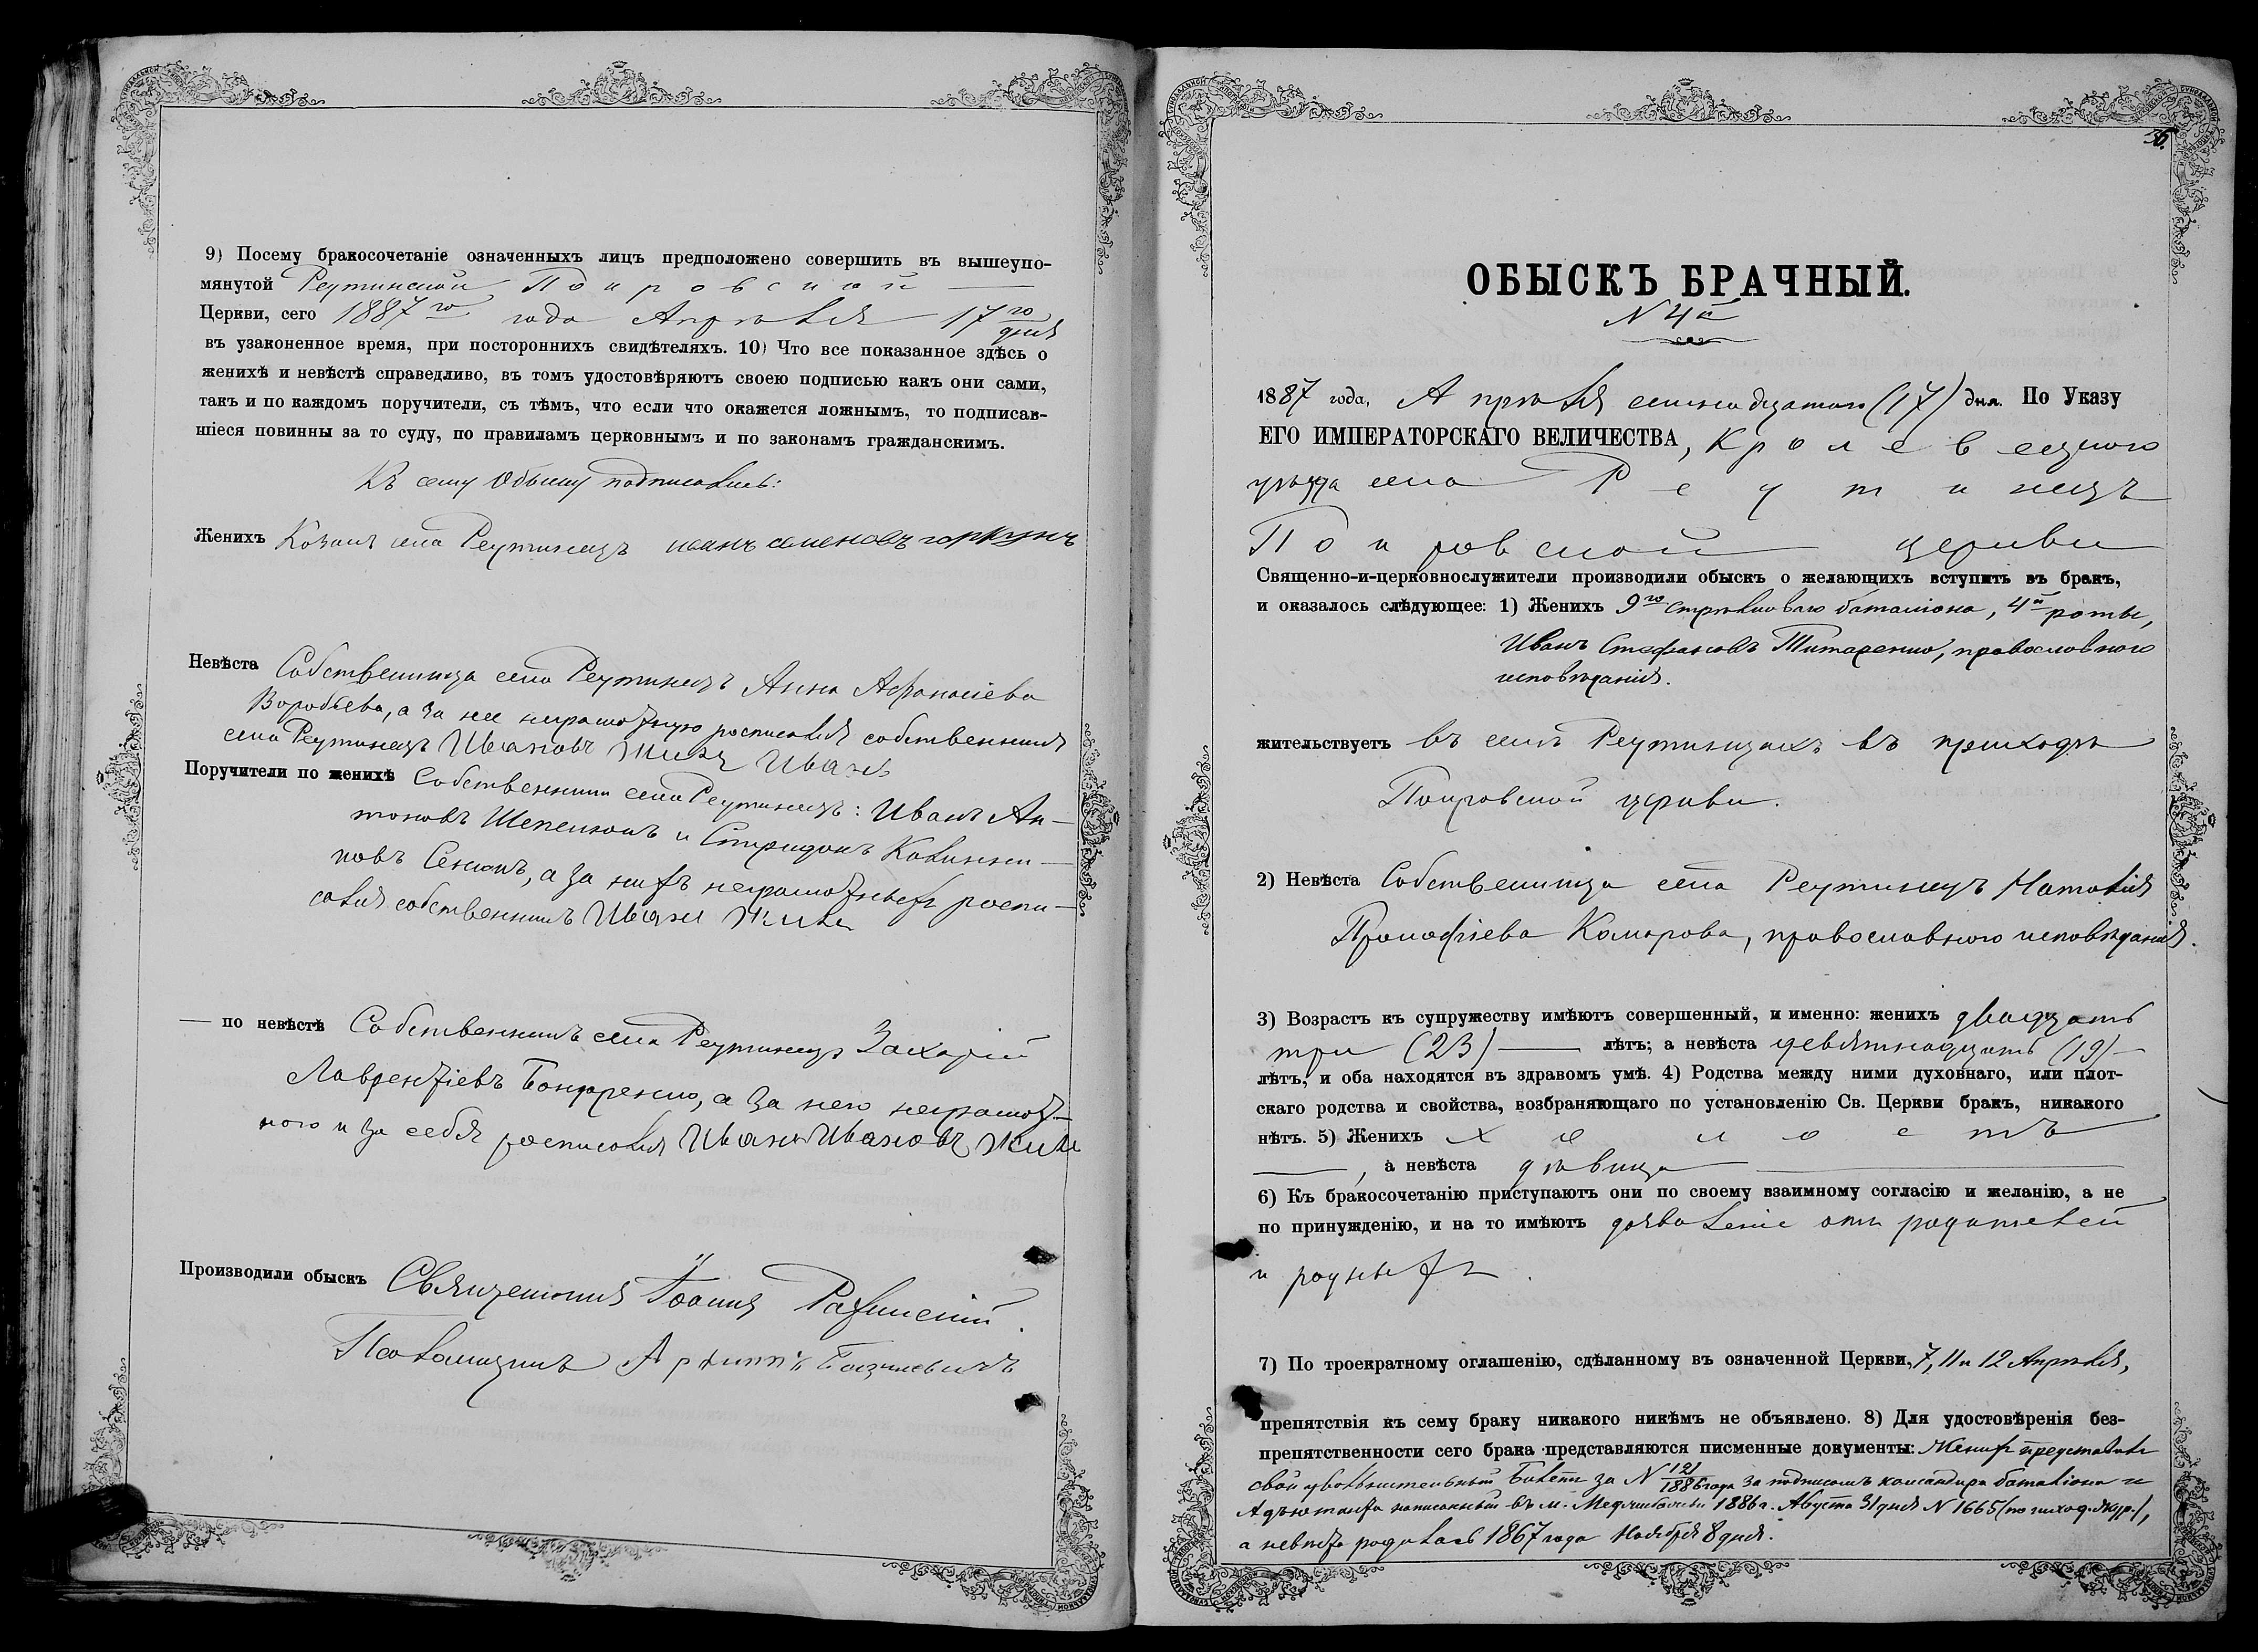 9) Посему бракосочетаніе означенныхъ лицъ предположено совершить въ вышеупо-
мянутой Реутинской Покровской
Церкви, сего 1887го года Апрѣля 17го дня
въ узаконенное время, при постороннихъ свидѣтеляхъ. 10) Что все показанное здѣсь о
женихѣ и невѣстѣ справедливо, въ томъ удостовѣряютъ своею подписью какъ они сами,
такъ и по каждомъ поручители, съ тѣмъ, что если что окажется ложнымъ, то подписав-
шіеся повинны за то суду, по правиламъ церковнымъ и по законамъ гражданскимъ.
Къ сему обыску подписались:
Женихъ Козакъ села Реутинецъ иванъ семеновъ горкунъ
Невѣста Собственница села Реутинецъ Анна Афанасіева
Воробьева, а за нее неграмотную росписался собственникъ
села Реутинецъ Ивановъ Иванъ
Поручители по женихѣ Собственники села Реутинецъ: Иванъ Ан-
тоновъ Шепенокъ и Спиридонъ Калинни-
ковъ Сенокъ, а за нихъ неграмотныхъ роспи-
сался собственникъ Иванъ
— по невѣстѣ Собственникъ села Реутинецъ Захарій
Лаврентіевъ Бондаренко, а за него неграмот-
ного и за себя росписался Иванъ Ивановъ
Производили обыскъ Священникъ Іоаннъ
Псаломщикъ
36.
ОБЫСКЪ БРАЧНЫЙ.
N 4й
1887 года, Апрѣля семнадцатого (17) дня. По Указу
ЕГО ИМПЕРАТОРСКАГО ВЕЛИЧЕСТВА, Кролевецкого
уѣзда села Реутинецъ
Покровской церкви
Священно-и-церковнослужители производили обыскъ о желающихъ вступить въ бракъ,
и оказалось слѣдующее: 1) Женихъ 9го стрѣлковаго баталіона, 4й роты,
Иванъ Стефановъ Титаренко, православного
исповѣданія.
жительствуетъ въ селѣ Реутинцахъ въ приходѣ
Покровской церкви.
2) Невѣста Собственница села Реутинецъ Наталія
Прокофіева Комарова, православного исповѣданія.
3) Возрастъ къ супружеству имѣютъ совершенный, и именно: женихъ двадцать
три (23) — лѣтъ; а невѣста девятнадцать (19) —
лѣтъ, и оба находятся въ здравомъ умѣ. 4) Родства между ними духовнаго, или плот-
скаго родства и свойства, возбраняющаго по установленію Св. Церкви бракъ, никакого
нѣтъ. 5) Женихъ холостъ
—, а невѣста дѣвица —
6) Къ бракосочетанію приступаютъ они по своему взаимному согласію и желанію, а не
по принужденію, и на то имѣютъ дозволеніе отъ родителей
и родныхъ.
7) По троекратному оглашенію, сдѣланному въ означенной Церкви, 7, 11 и 12 Апрѣля,
препятствія къ сему браку никакого никѣмъ не объявлено. 8) Для удостовѣренія без-
препятственности сего брака представляются писменные документы: Женихъ представилъ
свой увольнительный билетъ за N 121/1886 года за подписомъ командира баталіона и
Адъютанта написанный въ м. 1886 г. Августа 31 дня N 1665 (по исход. жур.),
а невѣста родилась 1867 года Ноября 8 дня.